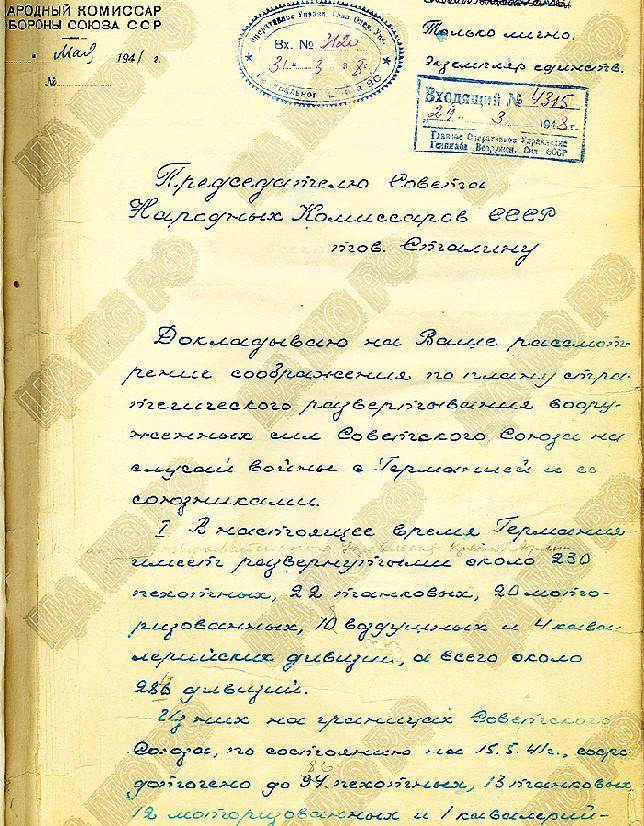 АРОДНЫЙ КОМИССАР
БОРОНЫ СОЮЗА ССР
Мая 1941 г.
№
Вх. № 3120
31 3 8
Только лично.
Экземпляр единств.
Входящий № 4315
29 3 1948 г.
Главное Оперативное Управление
Генштаба Вооружен. Сил СССР
Председателю Совета
Народных Комиссаров СССР
тов. Сталину
Докладываю на Ваше рассмот-
рение соображения по плану стра-
тегического развертывания воору-
женных сил Советского Союза на
случай войны с Германией и ее
союзниками.
I В настоящее время Германия
имеет развернутыми около 230
пехотных, 22 танковых, 20 мото-
ризованных, 8 воздушных и 4 кава-
лерийских дивизий, а всего около
284 дивизий.
Из них на границах Советского
Союза, по состоянию на 15.5.41г., сосре-
86
доточено до пехотных, 13 танковых,
12 моторизованных и 1 кавалерий-
ЦА МО РФ